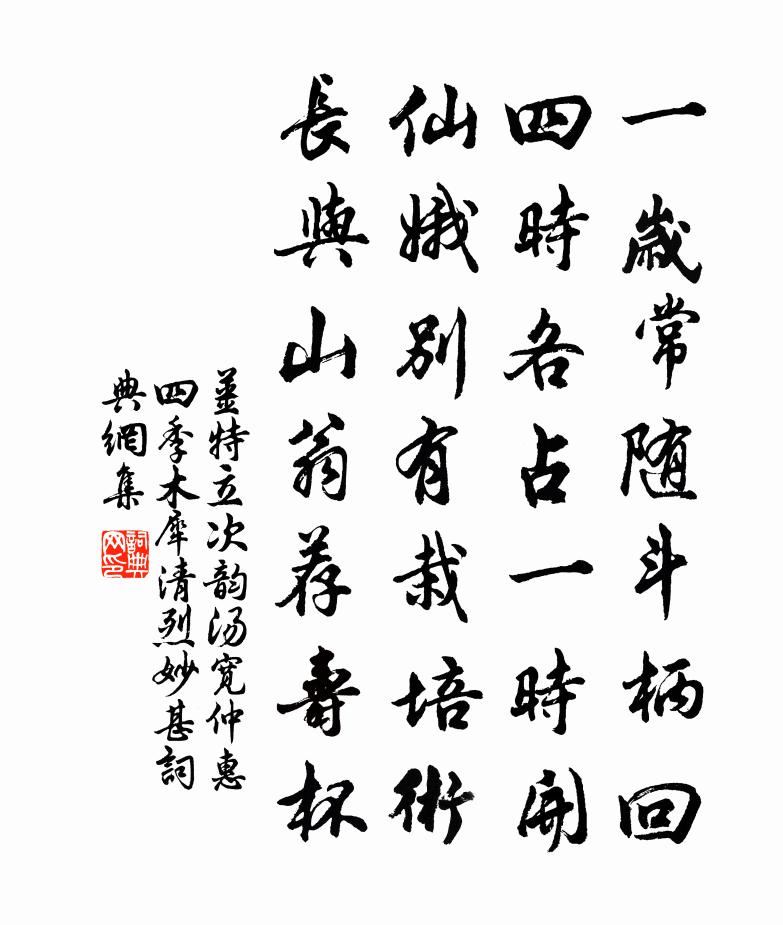 一歲常随斗柄回
四時各占一時開
仙娥别有栽培術
長與山翁荐壽杯
姜特立次韵汤寬仲惠
四季木犀清烈妙甚詞
典網集
詞典网印